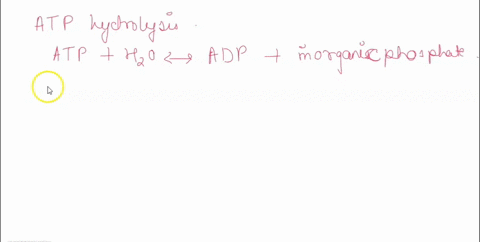 ATP hydrolysis.
ATP + H₂O ↔ ADP + inorganic phosphate.